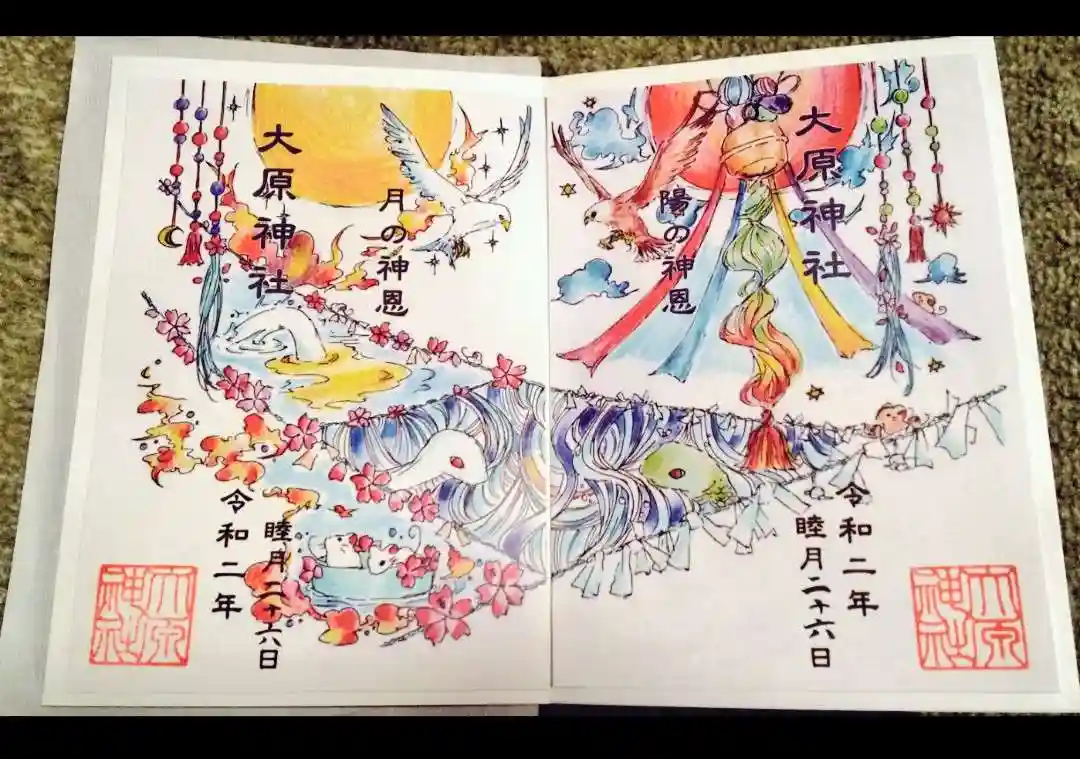 大原神社
陽の神恩
令和二年
睦月二十六日
大原神社
大原神社
月の神恩
睦月二十六日
令和二年
大原神社